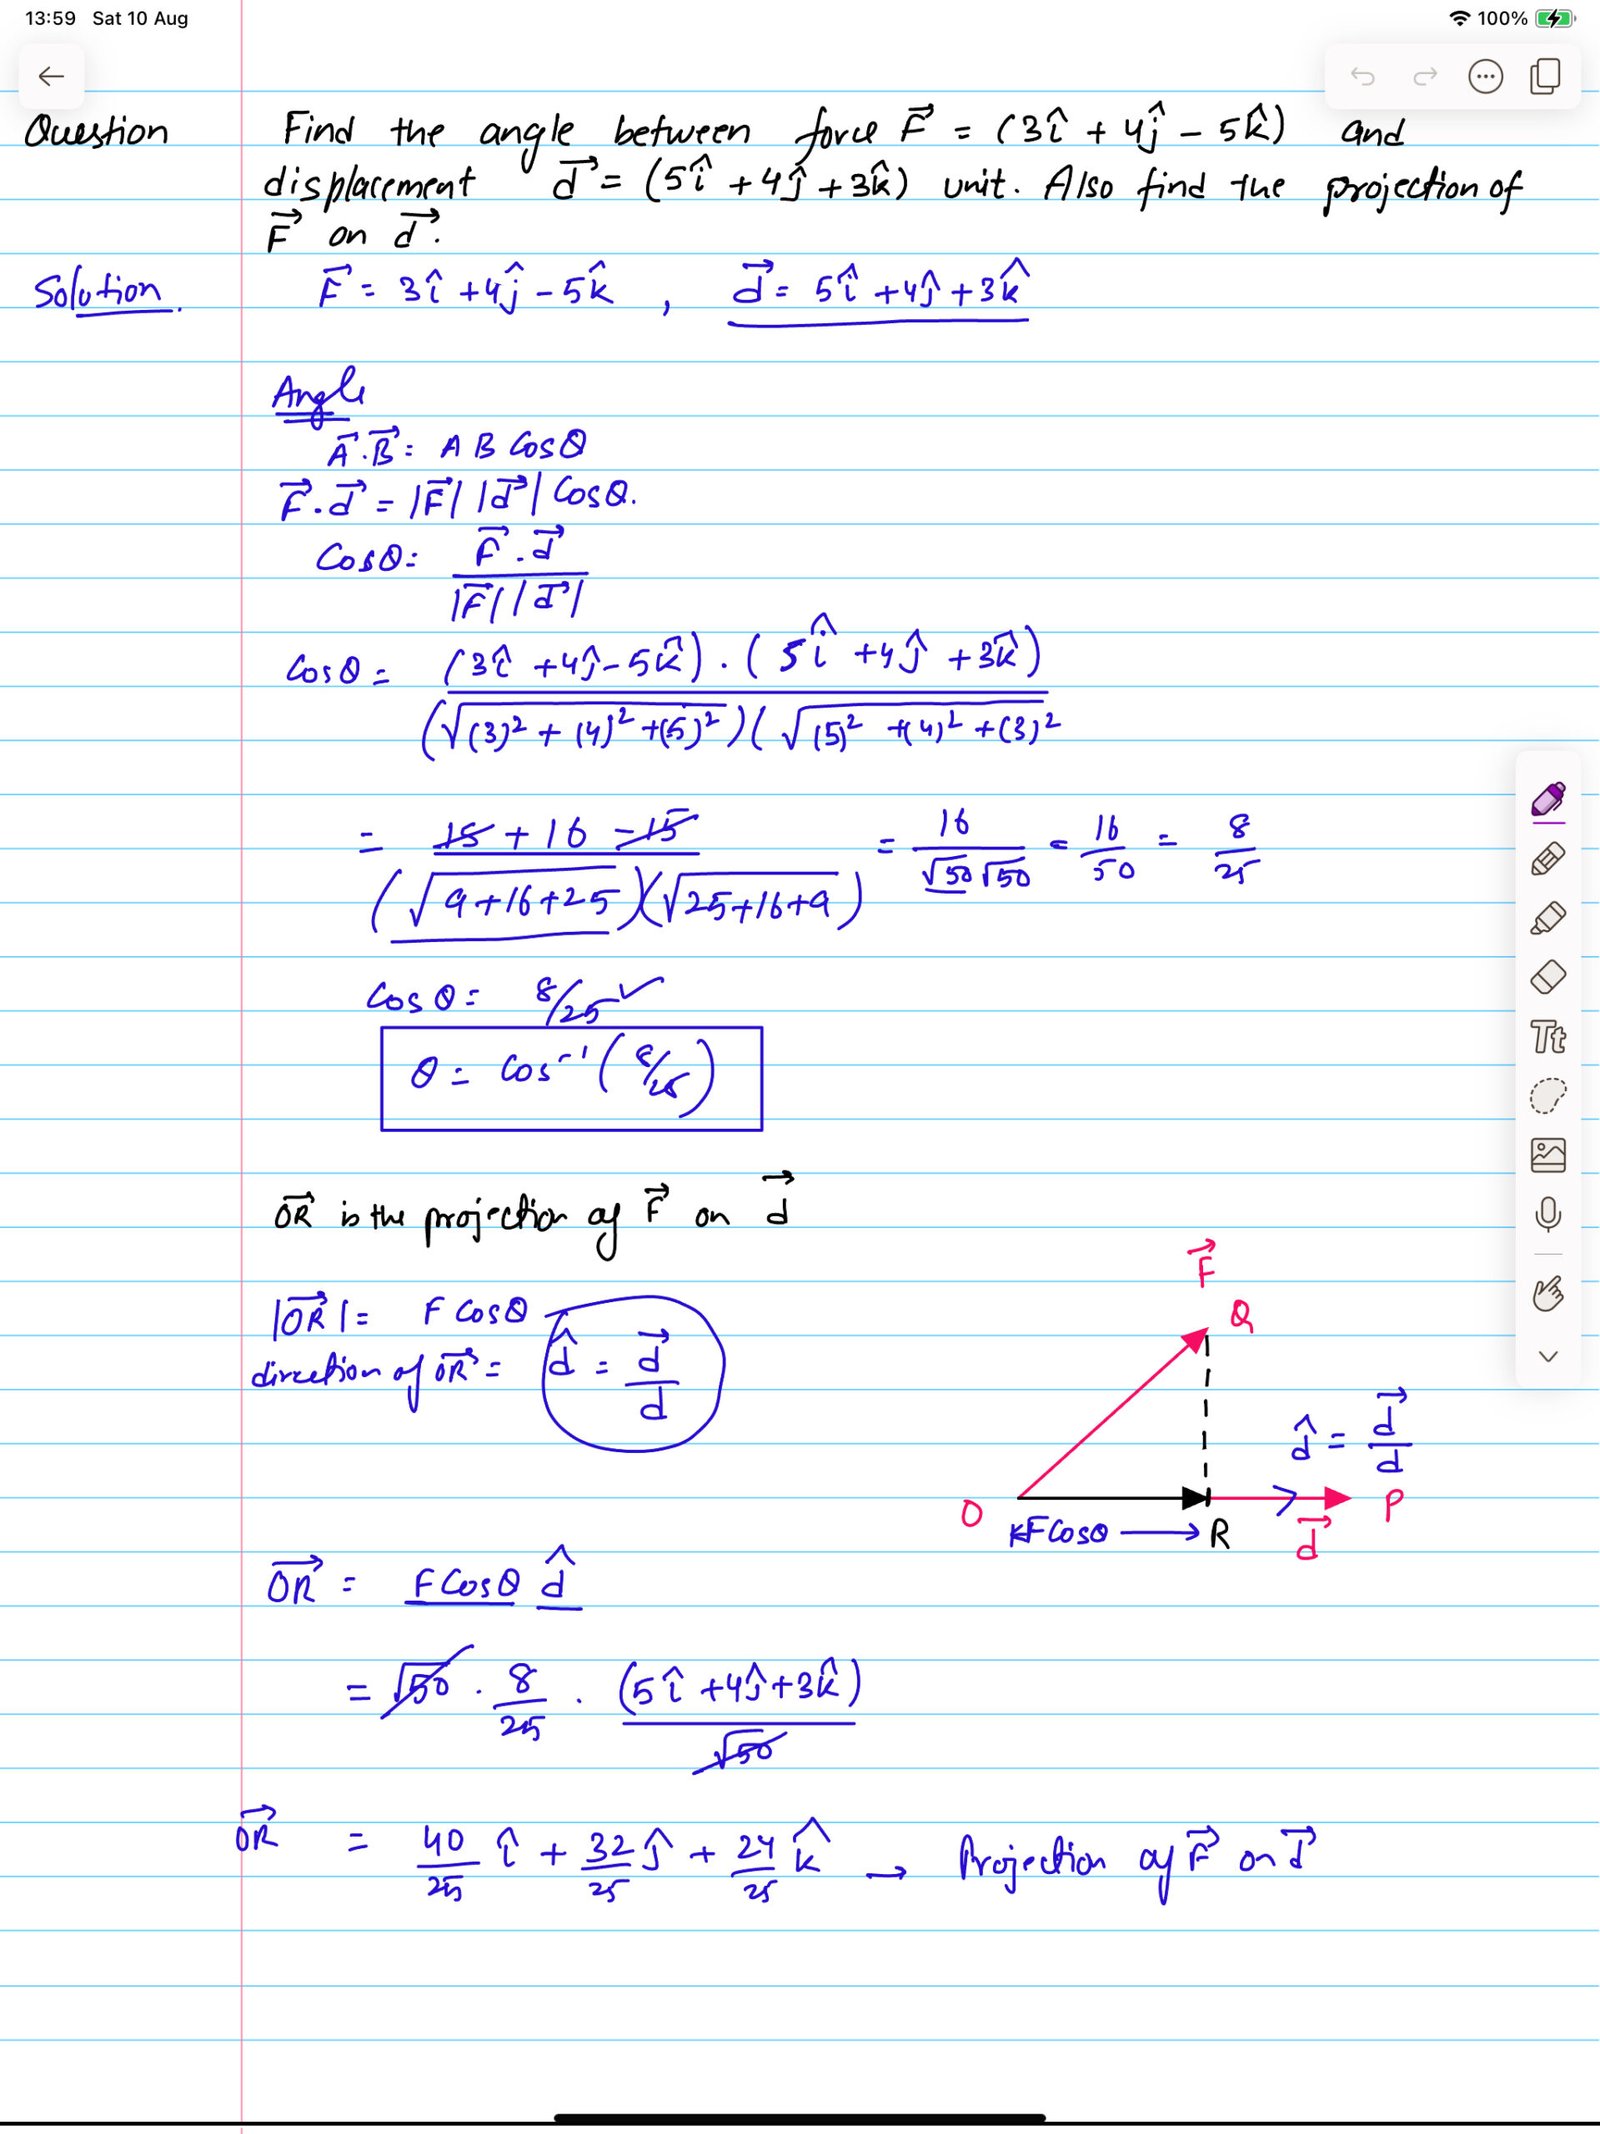 13:59 Sat 10 Aug 100%
Question Find the angle between force F⃗ = (3î + 4ĵ − 5k̂) and
displacement d⃗ = (5î + 4ĵ + 3k̂) unit. Also find the projection of
F⃗ on d⃗.
Solution. F⃗ = 3î + 4ĵ − 5k̂ , d⃗ = 5î + 4ĵ + 3k̂
Angle
A⃗.B⃗ = A B Cosθ
F⃗.d⃗ = |F⃗| |d⃗| Cosθ.
Cosθ = F⃗.d⃗ / |F⃗| |d⃗|
Cosθ = (3î + 4ĵ − 5k̂) . (5î + 4ĵ + 3k̂) / (√(3)² + (4)² + (5)²)(√(5)² + (4)² + (3)²
= 15 + 16 − 15 / (√9+16+25)(√25+16+9) = 16 / √50 √50 = 16/50 = 8/25
Cosθ = 8/25 ✓
θ = Cos⁻¹ (8/25)
OR⃗ is the projection of F⃗ on d⃗
F⃗
Q
|OR⃗| = F Cosθ
direction of OR⃗ = d̂ = d⃗/d
d̂ = d⃗/d
O R P
FCosθ ⟶ d⃗
OR⃗ = FCosθ d̂
= √50 . 8/25 . (5î + 4ĵ + 3k̂) / √50
OR⃗ = 40/25 î + 32/25 ĵ + 24/25 k̂ → Projection of F⃗ on d⃗
Tt